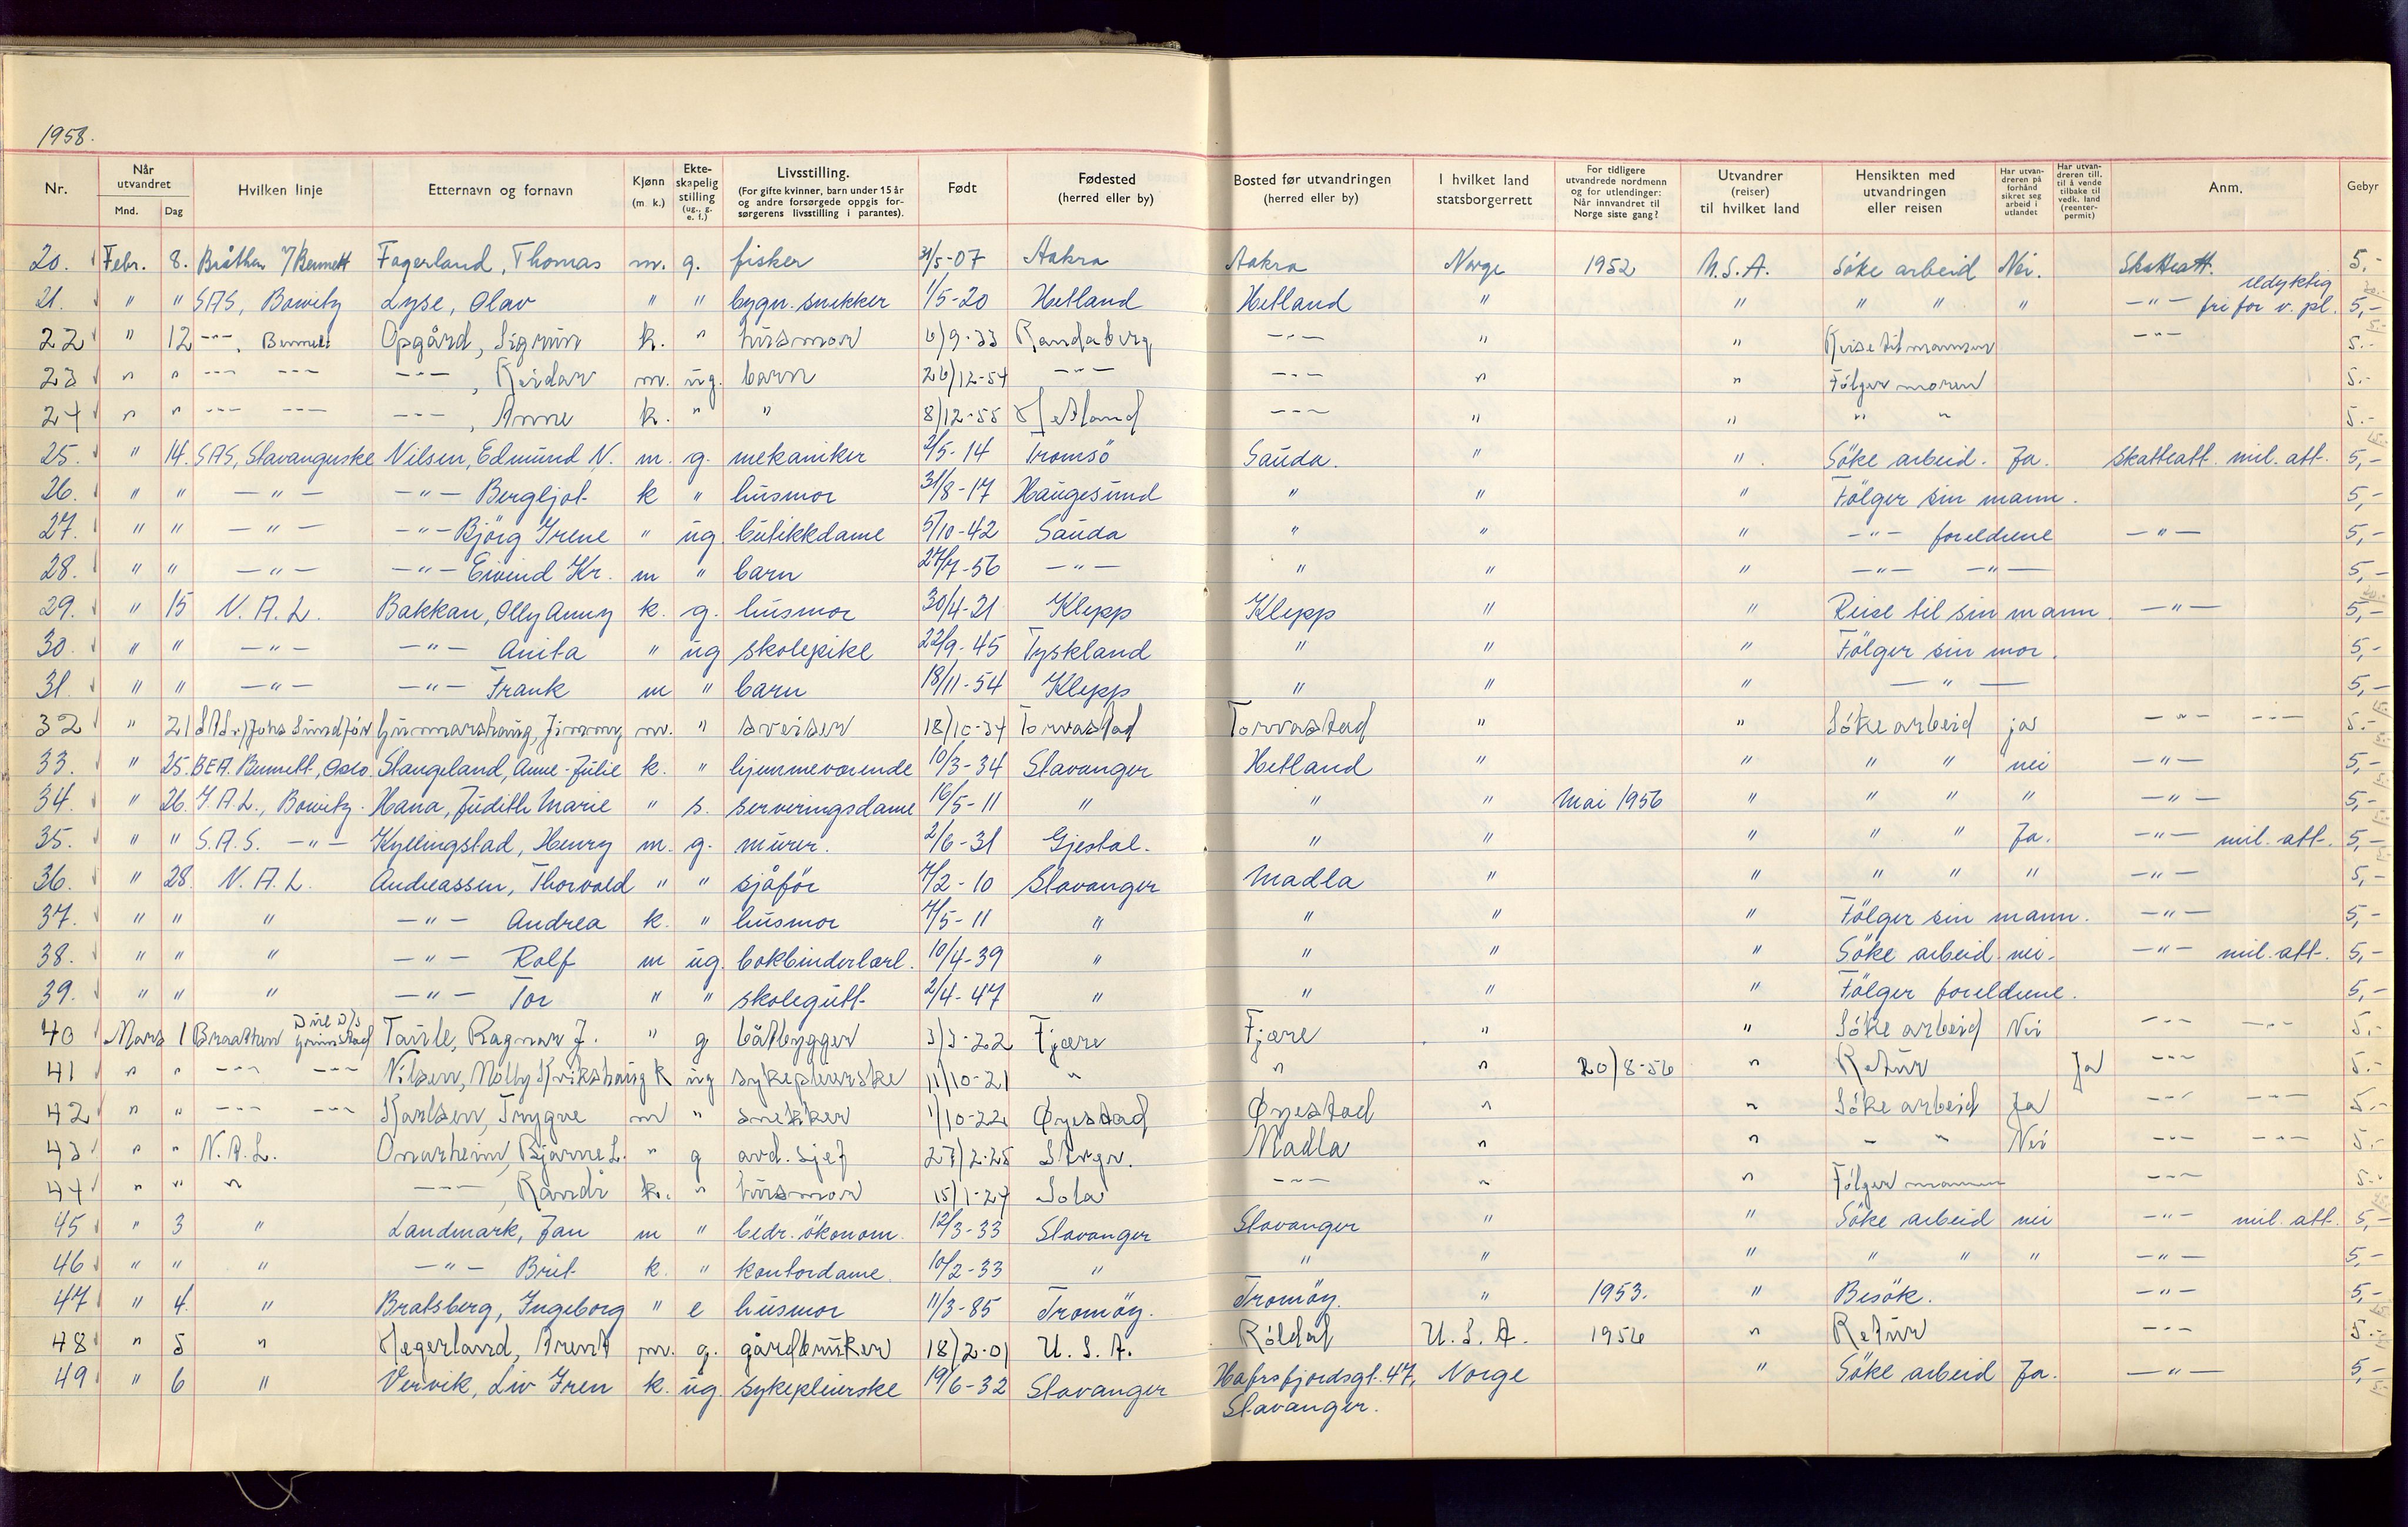 1958.
Nr. | Når utvandret Mnd. Dag | Hvilken linje | Etternavn og fornavn | Kjønn (m. k.) | Ekteskapelig stilling (ug., g. e. f.) | Livsstilling. (For gifte kvinner, barn under 15 år og andre forsørgede oppgis forsørgerens livsstilling i parantes). | Født | Fødested (herred eller by) | Bosted før utvandringen (herred eller by) | I hvilket land statsborgerrett | For tidligere utvandrede nordmenn og for utlendinger: Når innvandret til Norge siste gang? | Utvandrer (reiser) til hvilket land | Hensikten med utvandringen eller reisen | Har utvandreren på forhånd sikret seg arbeid i utlandet | Har utvandreren till. til å vende tilbake til vedk. land (reenterpermit) | Anm. | Gebyr
20. Febr. 8. Bråthen / Bennett Fagerland, Thomas m. g. fisker 31/5-07 Aakra Aakra Norge 1952 U.S.A. Söke arbeid Nei. Skatteatt. 5,-
21. " " SAS, Bowitz Lyse, Olav " " bygn. snekker 1/5-20 Hetland Hetland " " " " " -"- udyktig fri for v. pl. 5,-
22 " 12 -"-, Bennett Opgård, Sigrun k. " husmor 6/9-33 Randaberg -"- " " Reise til mannen -"- 5.-
23 " " -"- -"- -"-, Reidar m. ug. barn 26/12-54 -"- -"- " " Følger moren 5.-
24 " " -"- -"- -"-, Anne k. " " 8/12-55 Hetland -"- " " " " 5.-
25. " 14. SAS, Stavangerske Nilsen, Edmund N. m. g. mekaniker 2/5-14 Tromsö Sauda. " " Söke arbeid. Ja. Skatteatt. mil. att. 5,-
26. " " -"- -"- Bergljot k " husmor 31/8-17 Haugesund " " " Fölger sin mann. 5,-
27. " " -"- -"- Björg Irene " ug butikkdame 5/10-42 Sauda " " " -"- foreldrene -"- 5,-
28. " " -"- -"- Eivind Kr. m " barn 27/7-56 -"- " " " -"- -"- 5,-
29. " 15 N.A.L. Bakkan, Olly Anny k. g. husmor 30/4-21 Klepp Klepp " " Reise til sin mann. -"- 5,-
30. " " -"- -"- Anita " ug skolepike 22/9-45 Tyskland " " " Fölger sin mor. 5,-
31. " " -"- -"- Frank m " barn 18/11-54 Klepp " " " -"- 5,-
32 " 21 Johs Sundför Gunnarshaug, Jimmy m. " sveiser 18/10-34 Torvastad Torvastad " " Söke arbeid ja -"- -"- 5.-
33. " 25. BEA. Bennett, Oslo. Stangeland, Anne-Julie k. " hjemmeværende 10/3-34 Stavanger Hetland " " " " nei -"- 5,-
34. " 26. I.A.L., Bowitz. Hana, Judith Marie " s. serveringsdame 16/5-11 " " " Mai 1956 " " " " -"- 5,-
35. " " S.A.S. -"- Kyllingstad, Henry m. g. murer. 2/6-31 Gjestal. " " " " " Ja. -"- mil. att. 5,-
36. " 28. N.A.L. Andreassen, Thorvald " " sjåför 4/2-10 Stavanger Madla " " " " " -"- 5,-
37. " " " -"- Andrea k. " husmor 4/5-11 " " " " Fölger sin mann. -"- 5,-
38. " " " -"- Rolf m ug. bokbinderlærl. 10/4-39 " " " " Söke arbeid nei. -"- mil. att. 5,-
39. " " " -"- Tor " " skolegutt 2/4-47 " " " " Fölger foreldrene. 5,-
40 Mars 1 Braathen Grimstad Taule, Ragnar J. " g båtbygger 3/3-22 Fjære Fjære " " Söke arbeid Nei -"- -"- 5.-
41 " " -"- -"- Nilsen, Molly Kvikshaug k ug sykepleierske 11/10-21 " " " 20/8-56 " Retur Ja -"- 5.-
42 " " -"- -"- Karlsen, Trygve m " snekker 1/10-22 Øyestad Øyestad " " Söke arbeid Ja -"- -"- 5.-
43 " " N.A.L. Omarheim, Bjarne L. " g avd. sjef 27/2-25 Stvgr. Madla " " - " Nei -"- -"- 5.-
44 " " " -"-, Randi k. " husmor 15/1-27 Sola -"- " " Følger mannen -"- 5.-
45 " 3 " Landmark, Jan m " bedr. ökonom. 12/3-33 Stavanger Stavanger " " Söke arbeid nei -"- mil. att. 5,-
46 " " " -"- Brit k. " kontordame. 10/2-33 " " " " " " " -"- 5,-
47 " 4. " Bratsberg, Ingeborg " e husmor 11/3-85 Tromöy. Tromöy. " 1953. " Besök. -"- 5,-
48 " 5 " Hegerland, Arent m. g. gårdbruker 18/2-01 U.S.A. Röldal U.S.A. 1956 " Retur -"- 5.-
49 " 6 " Vervik, Liv Iren k. ug. sykepleierske 19/6-32 Stavanger Hafrsfjordsgt. 47, Norge " Söke arbeid Ja. -"- 5,-
Stavanger.